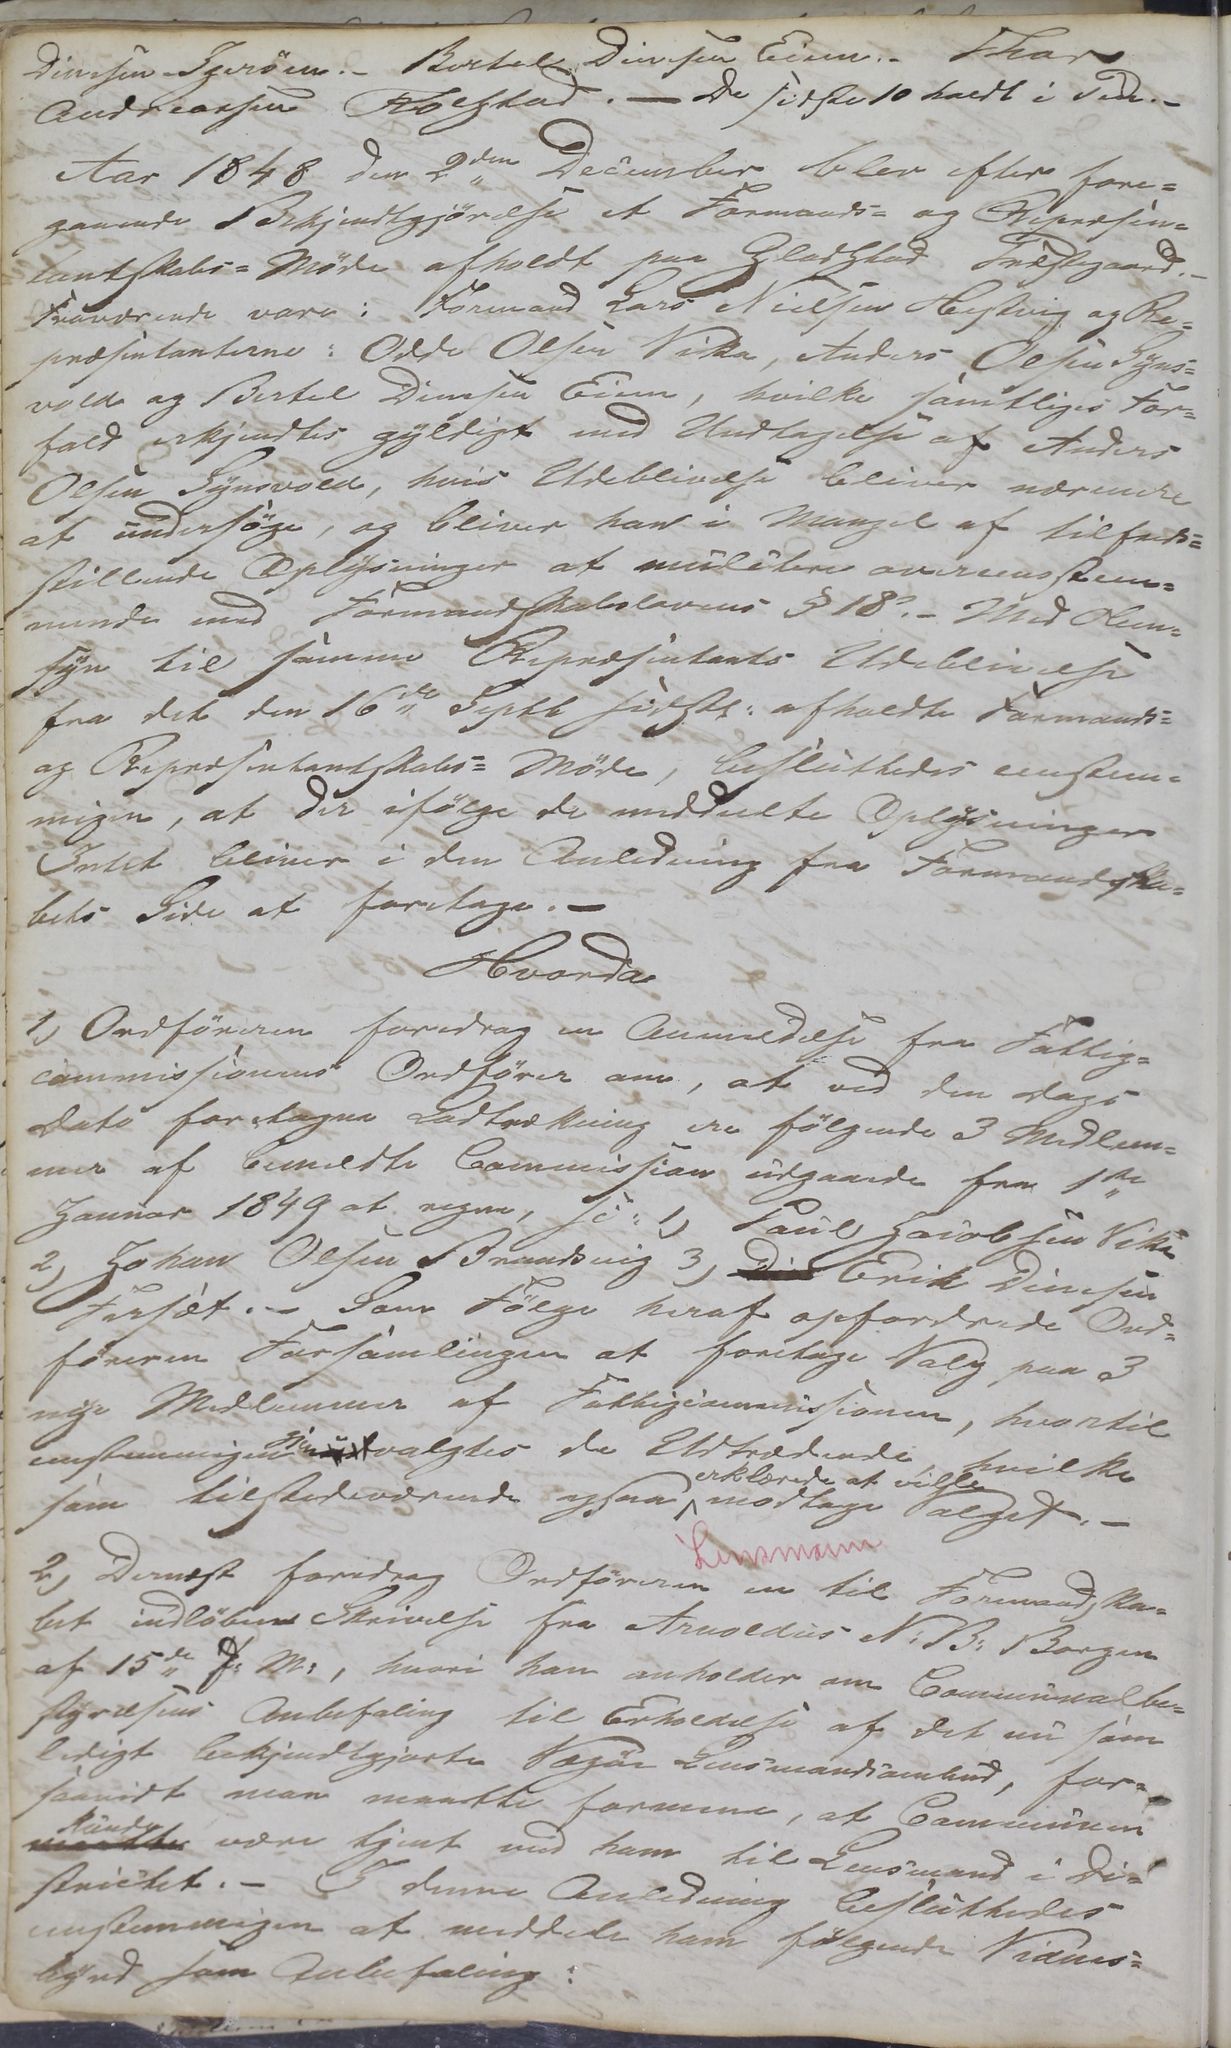 Dinesen Igerøen.- Bertel Dinesen Eiem.- Thor
Andreassen Holstad. — De sidste 10 holdt i Pen.-
Aar 1848 den 2den December blev efter fore=
gaaende Bekjendtgjørelse et Formands= og Repræsen=
tantskabs=Møde afholdt paa Gladstad Præstegaard.-
Fraværende vare: Formand Lars Nielsen Hestvig og Re=
præsentanterne: Odde Olsen Vika, Anders Olsen Syns=
vold og Bertel Dinesen Eiem, hvilke samtliges For=
fald erkjendtes gyldigt med Undtagelse af Anders
Olsen Synsvold, hvis Udeblivelse bliver nærmere
at undersøge, og bliver han i Mangel af tilfreds=
stillende Oplysninger at mulctere overensstem=
mende med Formandskabslovens § 18.- Med Hen=
syn til samme Repræsentants Udeblivelse
fra det den 16de Septb sidstl: afholdte Formands=
og Repræsentantskabs=Møde, besluttedes eenstem=
migen, at der ifølge de meddeelte Oplysninger
Intet bliver i den Anledning fra Formandska=
bets Side at foretage.-
Hvorda
1) Ordføreren foredrog en Anmeldelse fra Fattig=
commissionens Ordfører om, at ved den Dags
Dato foretagne Lodtrækning ere følgende 3 Medlem=
mer af bemeldte Commission udgaaede fra 1ste
Januar 1849 at regne, sc: 1) Paul Jacobsen Vika
2) Johan Olsen Brandsvig 3) Din Erik Dinesen
Fersæt.- Som Følge heraf opfordrede Ord=
føreren Forsamlingen at foretage Valg paa 3
nye Medlemmer af Fattigcommissionen, hvortil
eenstemmigen gjenvalgtes de Udtrædende, hvilke
som tilstedeværende ogsaa erklærede at ville modtage Valget.-
Lensmann
2) Dernæst foredrog Ordføreren en til Formandska=
bet indløben Skrivelse fra Arnoldus N: B: Borgen
af 15de f: M:, hvori han anholder om Communalbe=
styrelsens Anbefaling til Erholdelse af det nu som
ledigt bekjendtgjorte Vegøe Lensmandsombud, for=
saavidt man maatte formene, at Communen
maatte kunde være tjent med ham til Lensmand i Di=
strictet.- I denne Anledning besluttedes
eenstemmigen at meddele ham følgende Vidnes=
byrd som Anbefaling: